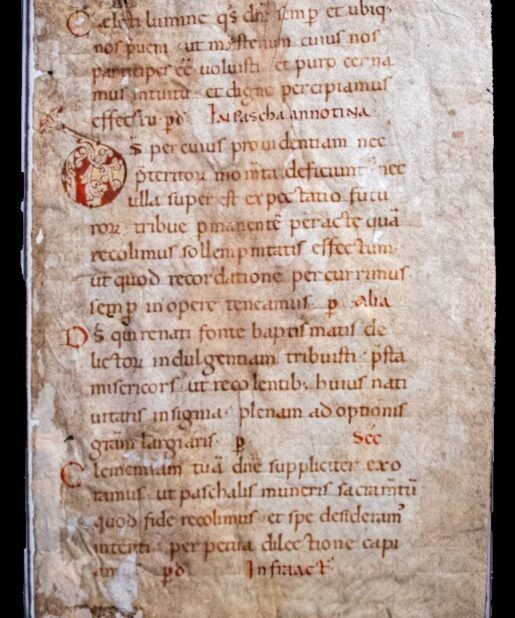 Cælesti lumine qs dne semp et ubiq;
nos pueni · ut mysterium cuius nos
participes eē uoluisti et puro cerna
mus intuitu · et digne percipiamus
effectu · pd In pascha annotina
Ds percuius prouidentiam nec
p̄teritoꝝ mom̄ta deficiunt · nec
ulla super est expectatio futu
roꝝ · tribue pmanentē peractę quā
recolimus sollempnitatis effectum ·
ut quod recordatione percurrimus
semp in opere teneamus · p · Alia
Ds̄ qui renati fonte baptismatis de
lictoꝝ indulgentiam tribuisti · p̄sta
misericors · ut recolentib; huius nati
uitatis insignia · plenam adoptionis
grām largiaris · p Sec̄
Clementiam tuā dne suppliciter exo
ramus · ut paschalis muneris sacram̄tū
quod fide recolimus · et spe desideram᾽
intenti · perpetua dilectione capi
am pd Infra act̄